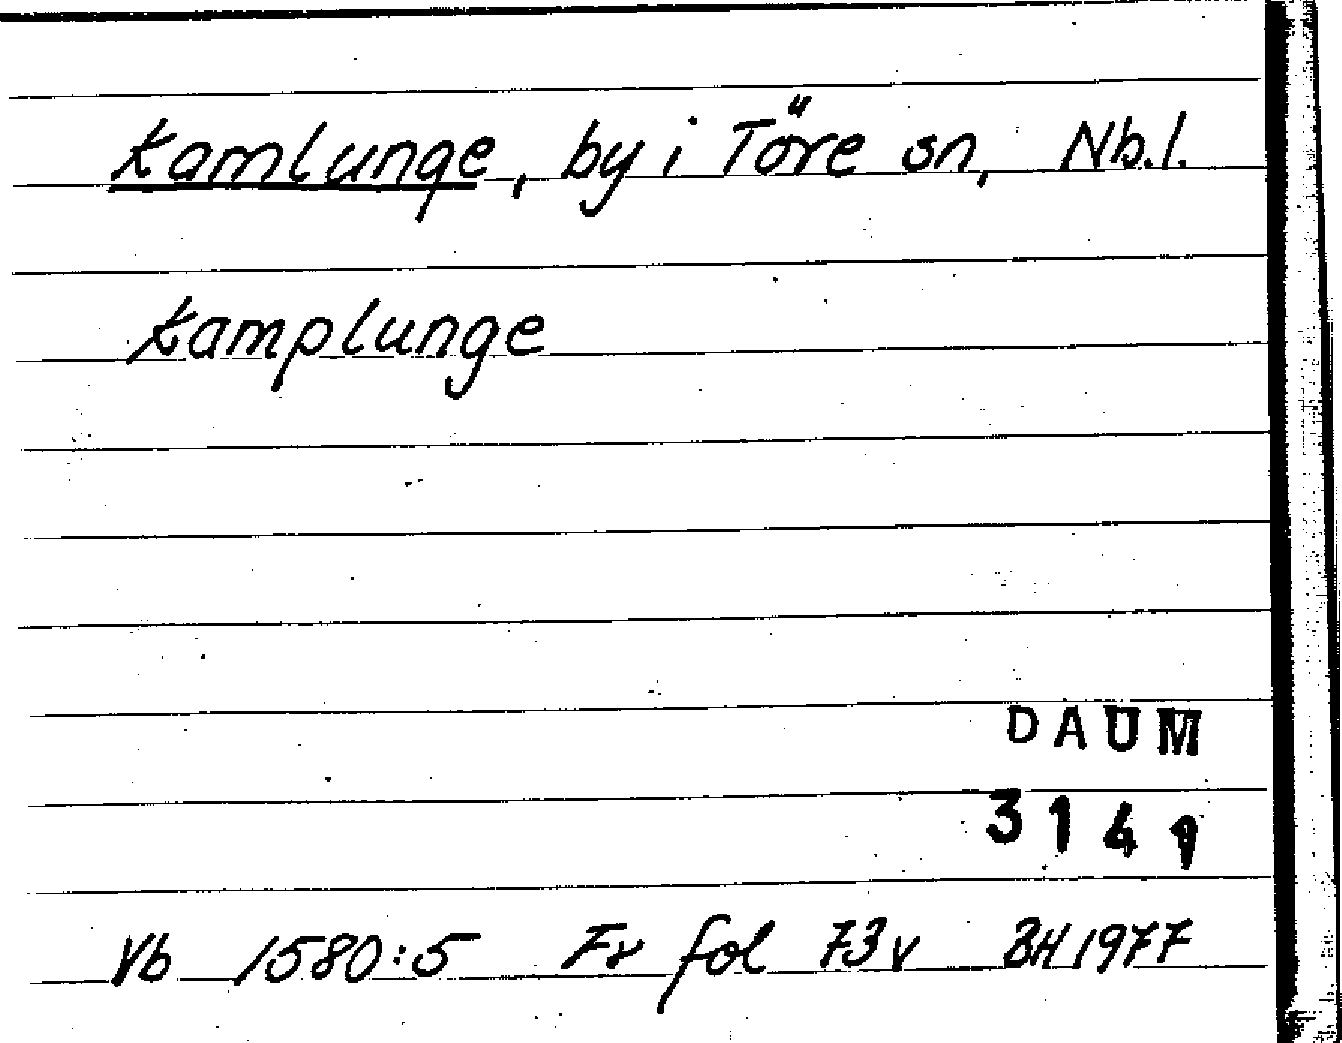 Kamlunge, by i Töre sn, Nb.l.
Kamplunge
DAUM
3141
Vb 1580:5 Fr fol 73v BH 1977